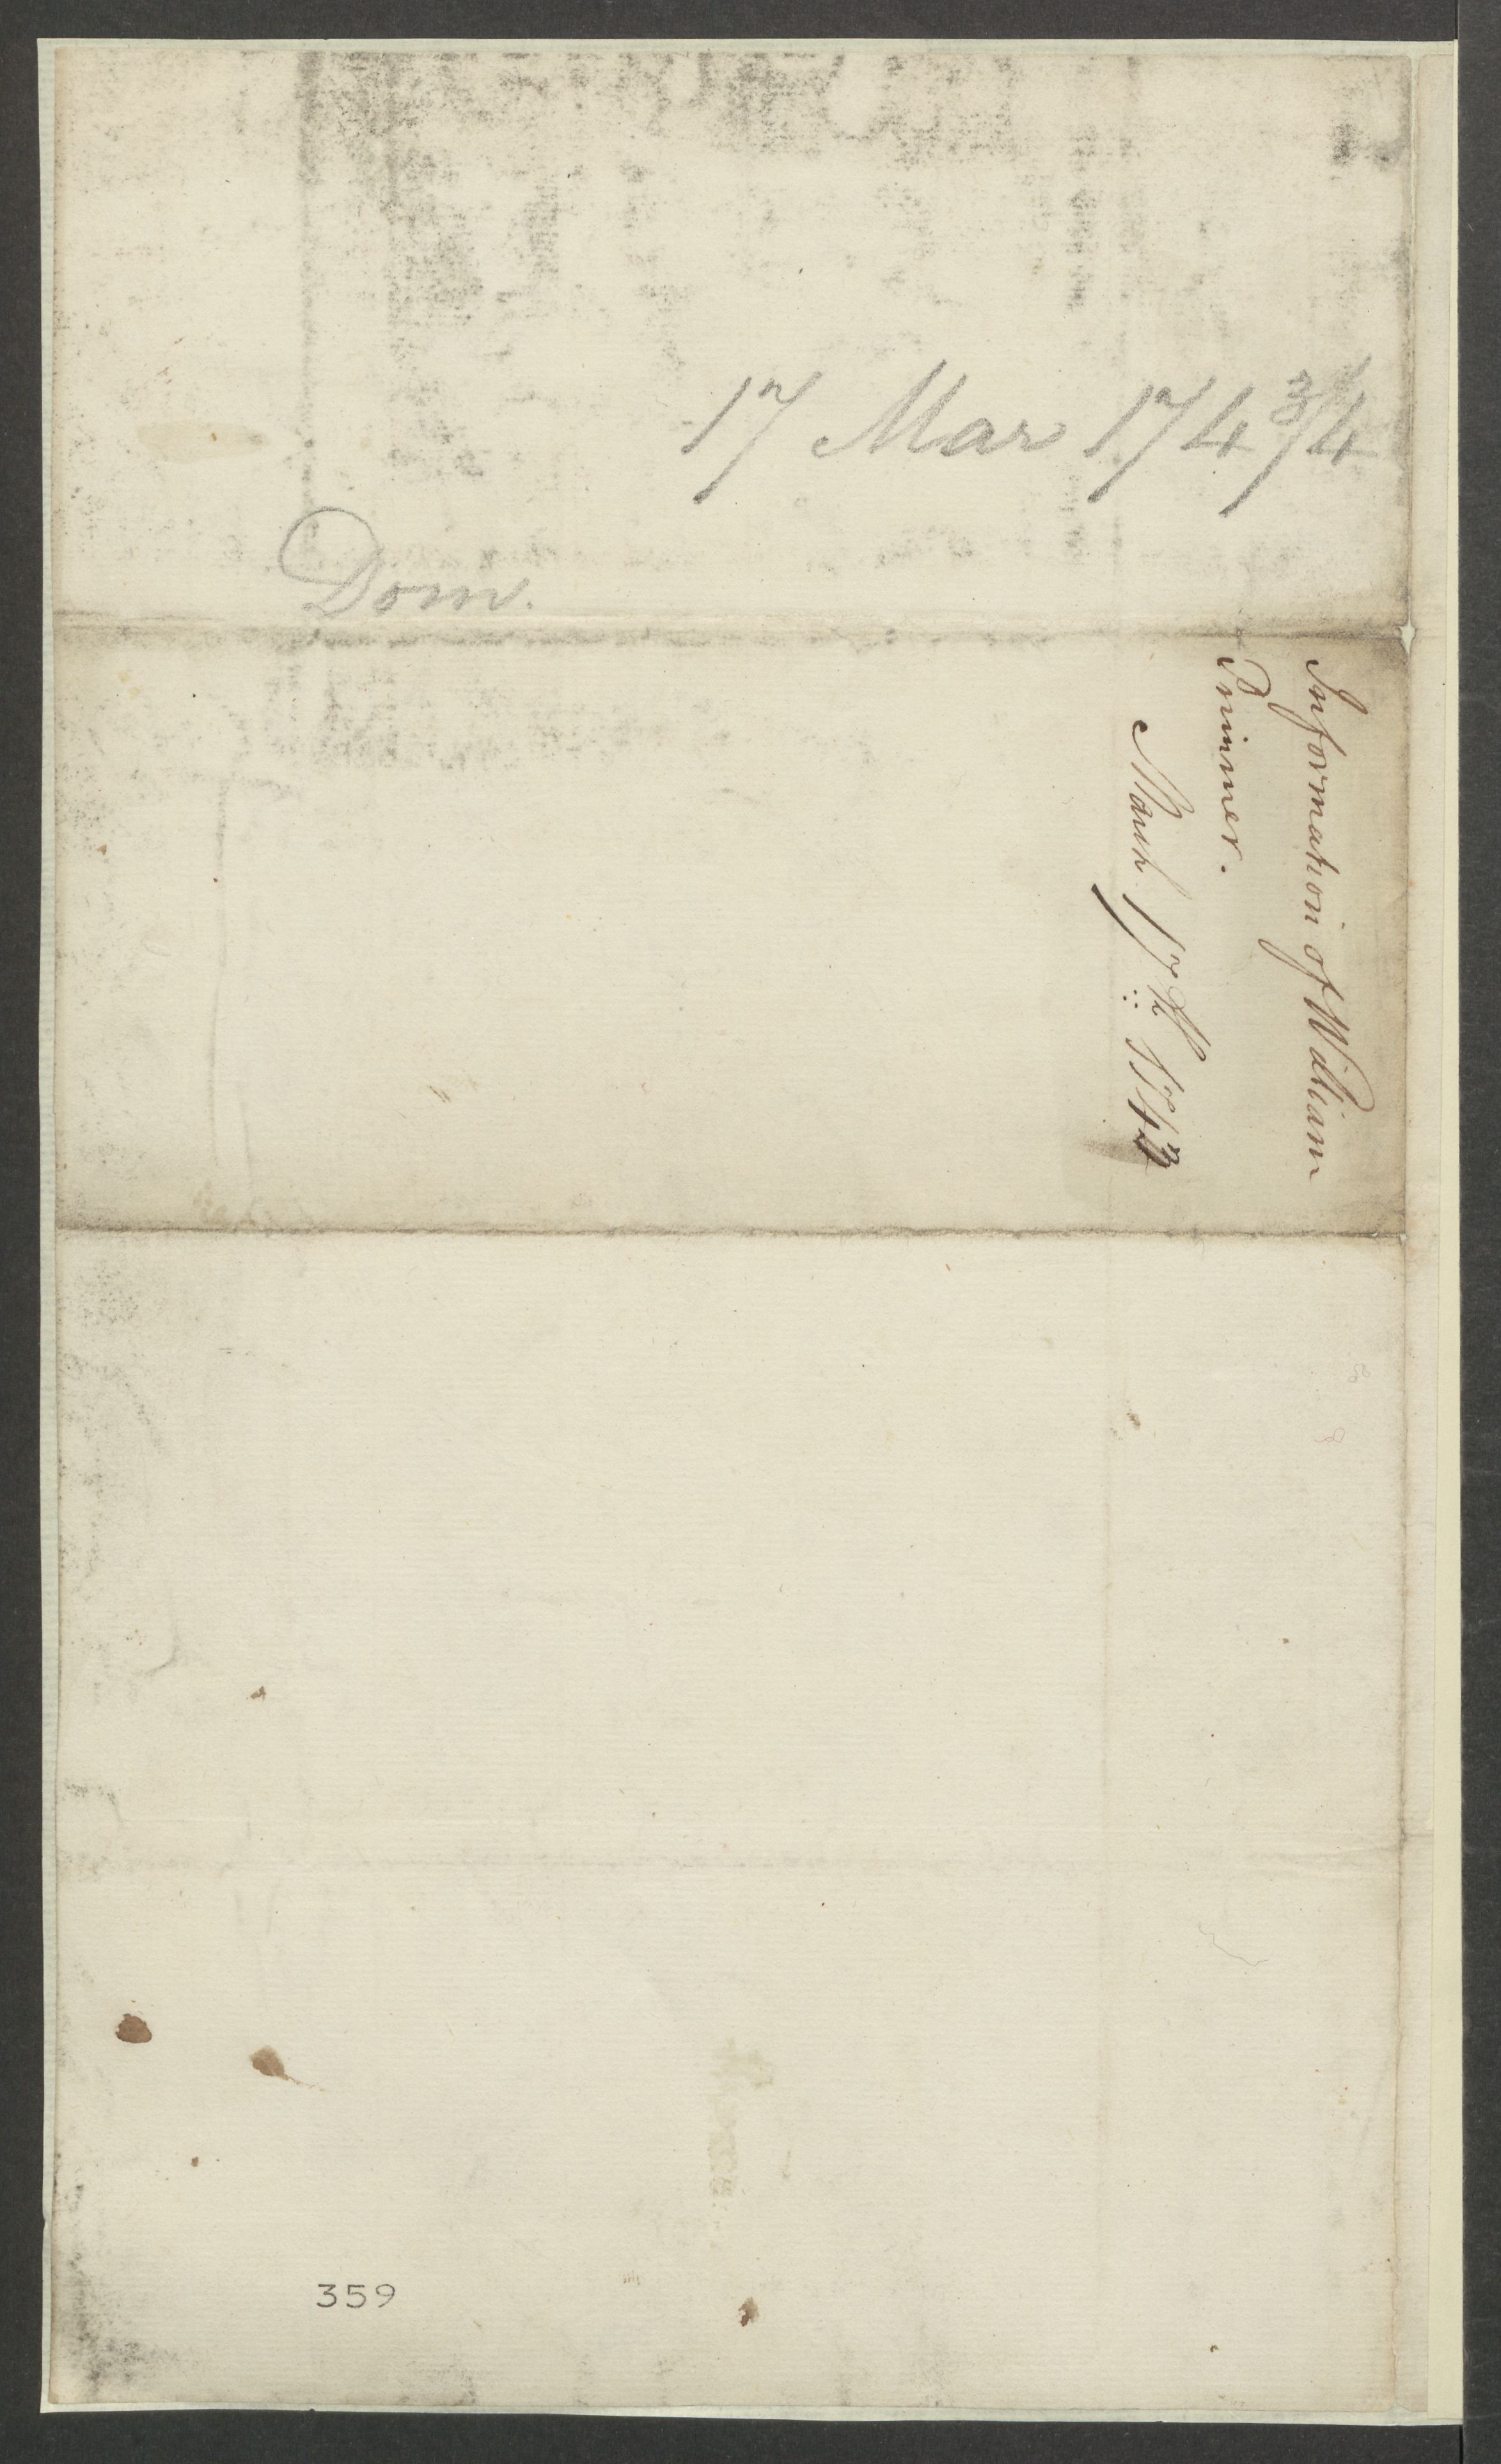 17 Mar 174 3/4
Dom.
Information of William
Primmer.
March 17th 1743
359